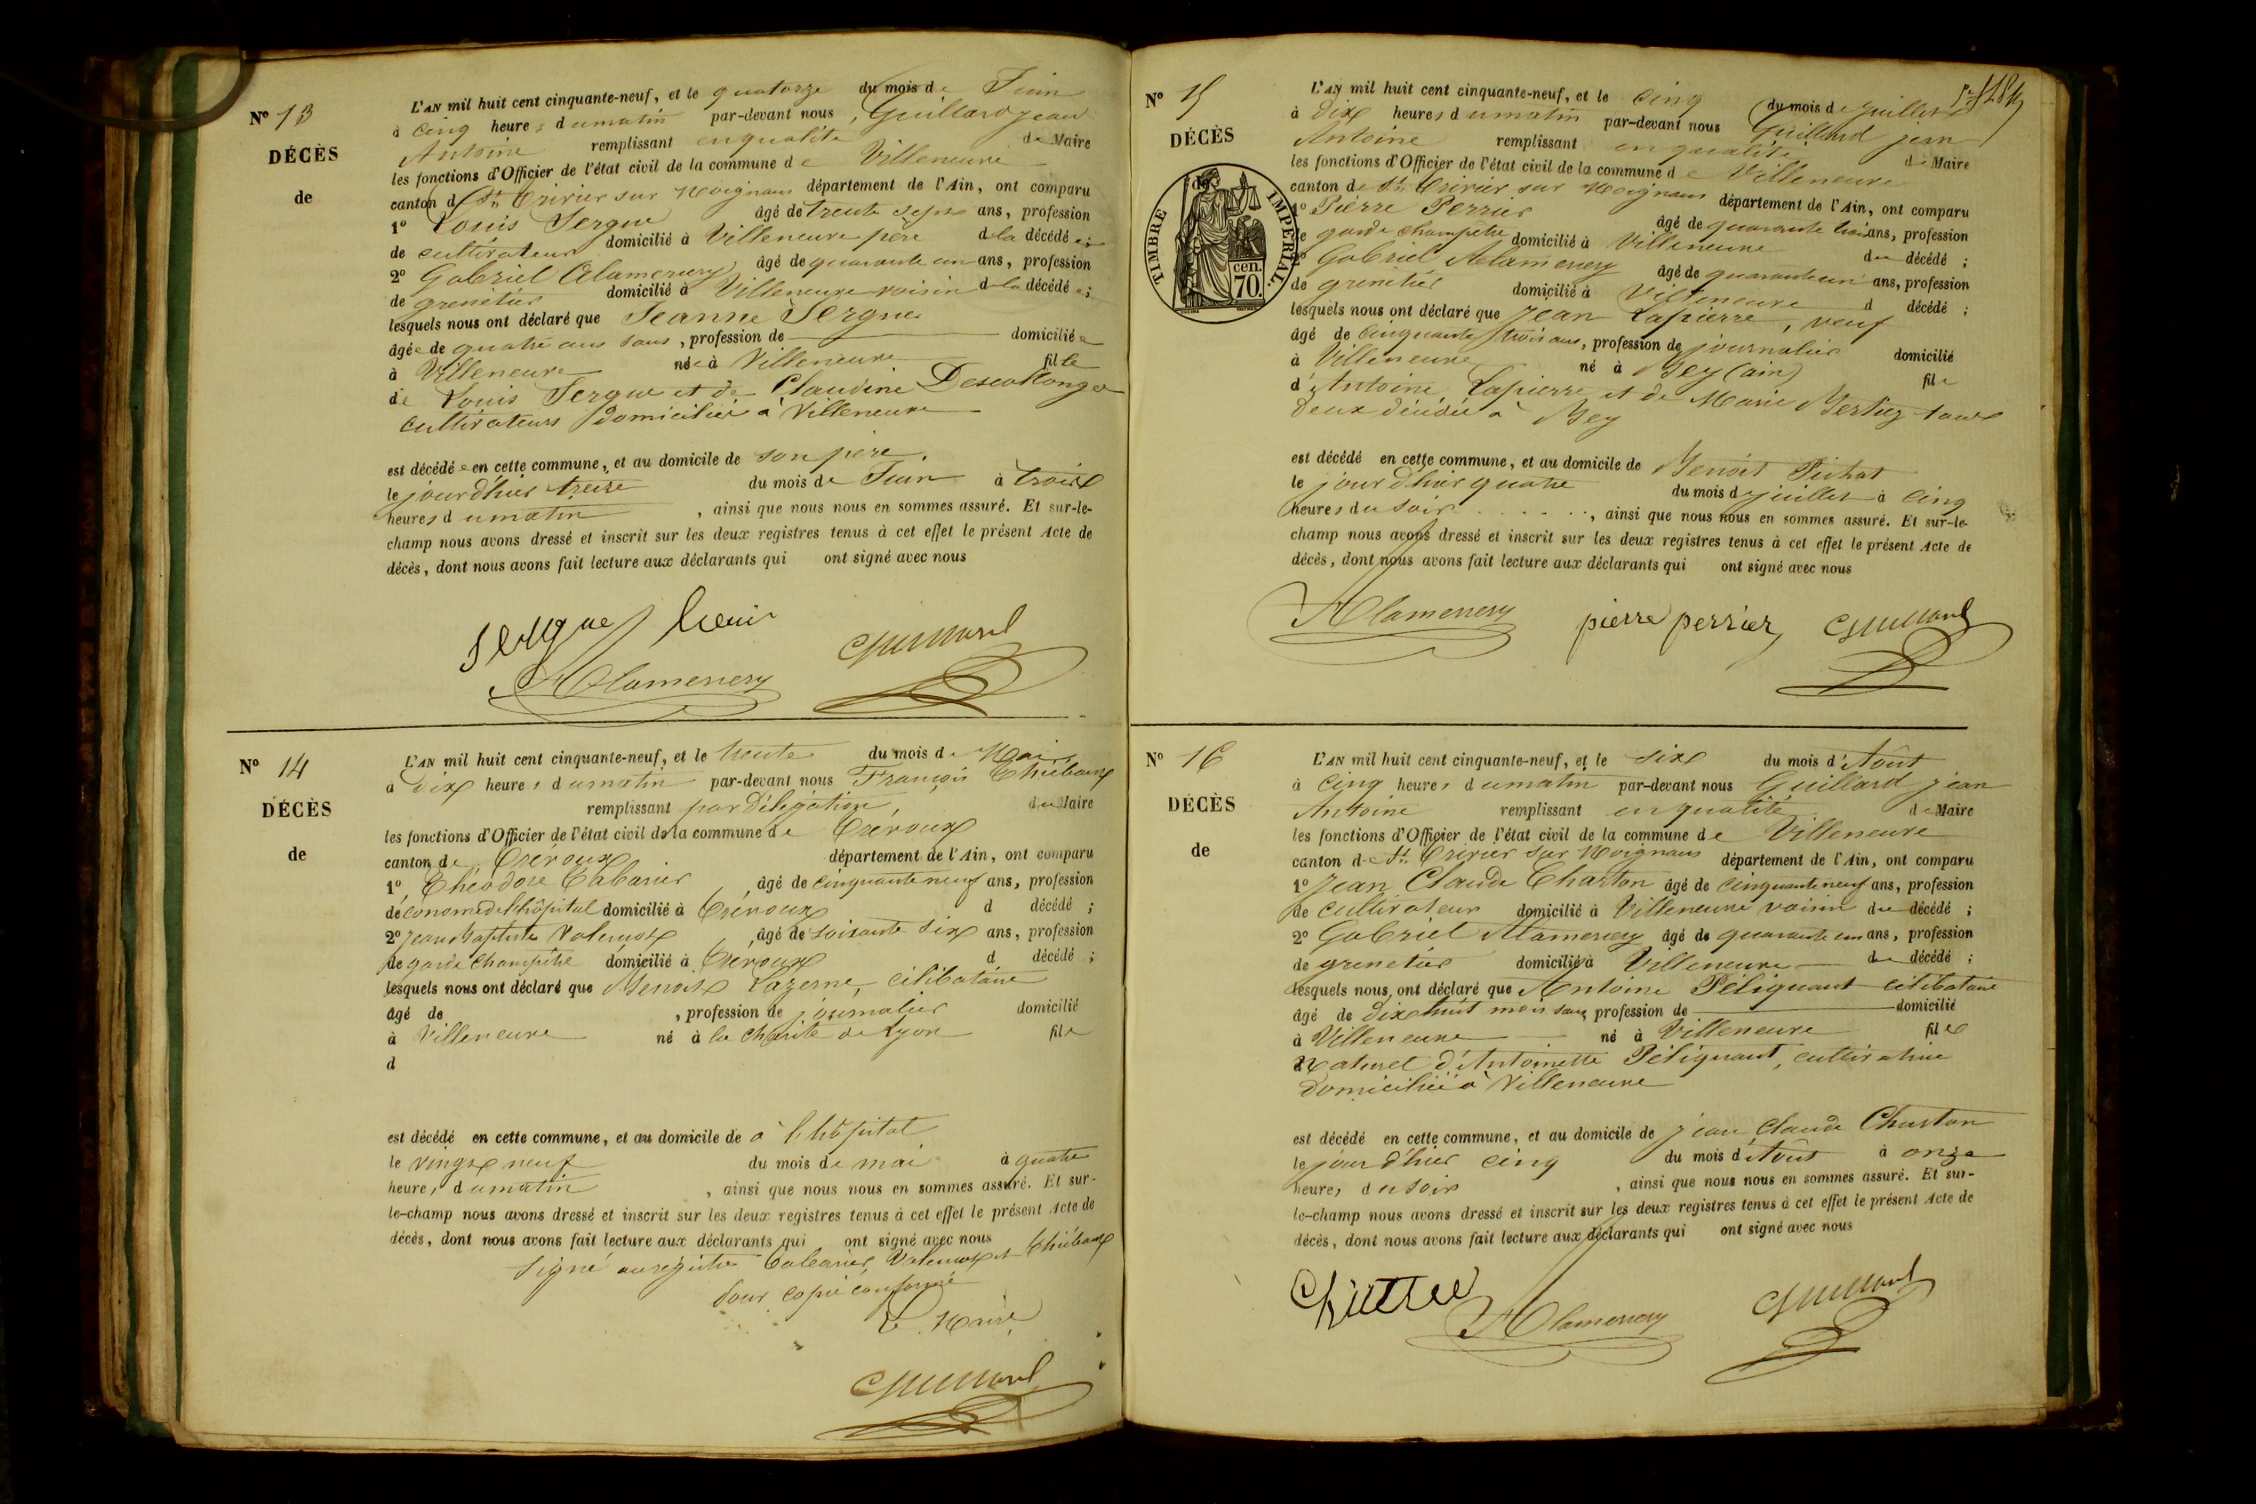 N° 13
DÉCÈS
de
L'AN mil huit cent cinquante-neuf, et le quatorze du mois de Juin
à cinq heures du matin par-devant nous, Guillard Jean
Antoine remplissant en qualité de Maire
les fonctions d'Officier de l'état civil de la commune de Villeneuve
canton de St Trivier sur Moignans département de l'Ain, ont comparu
1° Louis Sergue âgé de trente sept ans, profession
de cultivateur domicilié à Villeneuve père de la décédée ;
2° Gabriel Alamercery âgé de quarante un ans, profession
de grenetier domicilié à Villeneuve voisin de la décédée ;
lesquels nous ont déclaré que Jeanne Sergue
âgée de quatre ans sans, profession de domiciliée
à Villeneuve née à Villeneuve fille
de Louis Sergue et de Claudine Descollonges
cultivateurs domiciliés à Villeneuve
est décédée en cette commune, et au domicile de son père,
le jour d'hier treize du mois de Juin à trois
heures du matin, ainsi que nous nous en sommes assuré. Et sur-le-
champ nous avons dressé et inscrit sur les deux registres tenus à cet effet le présent Acte de
décès, dont nous avons fait lecture aux déclarants qui ont signé avec nous
Sergue Louis
Alamercery Guillard
N° 14
DÉCÈS
de
L'AN mil huit cent cinquante-neuf, et le trente du mois de Mai
à Dix heures du matin par-devant nous François Thiébaux
remplissant par délégation, du Maire
les fonctions d'Officier de l'état civil de la commune de Trévoux
canton de Trévoux département de l'Ain, ont comparu
1° Théodore Cabarier âgé de cinquante neuf ans, profession
d'économe de l'hôpital domicilié à Trévoux d décédé ;
2° Jean Baptiste âgé de soixante six ans, profession
de garde champêtre domicilié à Trévoux d décédé ;
lesquels nous ont déclaré que Benoit Lazerne, célibataire
âgé de , profession de journalier domicilié
à Villeneuve né à la charité de Lyon fils
d
est décédé en cette commune, et au domicile de à l'hôpital
le vingt neuf du mois de mai à quatre
heures du matin, ainsi que nous nous en sommes assuré. Et sur-
le-champ nous avons dressé et inscrit sur les deux registres tenus à cet effet le présent Acte de
décès, dont nous avons fait lecture aux déclarants qui ont signé avec nous
Signé au registre Cabarier, et Thiébaux
Pour copie conforme
Le Maire
Guillard
N° 15
DÉCÈS
de
TIMBRE IMPÉRIAL.
70. cen.
L'AN mil huit cent cinquante-neuf, et le cinq du mois de Juillet
à Dix heures du matin par-devant nous Guillard jean
Antoine remplissant en qualité de Maire
les fonctions d'Officier de l'état civil de la commune de Villeneuve
canton de St Trivier sur Moignans département de l'Ain, ont comparu
1° Pierre Perrier âgé de quarante trois ans, profession
de garde champêtre domicilié à Villeneuve du décédé ;
2° Gabriel Alamercery âgé de quarante un ans, profession
de grenetier domicilié à Villeneuve d décédé ;
lesquels nous ont déclaré que Jean Lapierre, veuf
âgé de cinquante trois ans, profession de journalier domicilié
à Villeneuve né à Bey (ain) fils
d'Antoine Lapierre et de Marie tous
Deux décédés à Bey
est décédé en cette commune, et au domicile de Benoit Pichat
le jour d'hier quatre du mois de juillet à cinq
heures du soir , ainsi que nous nous en sommes assuré. Et sur-le-
champ nous avons dressé et inscrit sur les deux registres tenus à cet effet le présent Acte de
décès, dont nous avons fait lecture aux déclarants qui ont signé avec nous
Alamercery pierre perrier Guillard
N° 16
DÉCÈS
de
L'AN mil huit cent cinquante-neuf, et le six du mois d'Août
à cinq heures du matin par-devant nous Guillard jean
Antoine remplissant en qualité de Maire
les fonctions d'Officier de l'état civil de la commune de Villeneuve
canton de St Trivier sur Moignans département de l'Ain, ont comparu
1° Jean Claude Charton âgé de cinquante neuf ans, profession
de cultivateur domicilié à Villeneuve voisin du décédé ;
2° Gabriel Alamercery âgé de quarante un ans, profession
de grenetier domicilié à Villeneuve du décédé ;
lesquels nous ont déclaré que Antoine Péliguant célibataire
âgé de dix huit mois sans profession de domicilié
à Villeneuve né à Villeneuve fils
naturel d'Antoinette Péliguant, cultivatrice
domiciliée à Villeneuve
est décédé en cette commune, et au domicile de jean Claude Charton
le jour d'hier cinq du mois d'Août à onze
heures du soir , ainsi que nous nous en sommes assuré. Et sur-
le-champ nous avons dressé et inscrit sur les deux registres tenus à cet effet le présent Acte de
décès, dont nous avons fait lecture aux déclarants qui ont signé avec nous
Alamercery Guillard